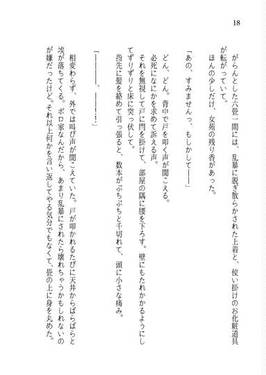 18
がらんとした六畳一間には、乱暴に脱ぎ散らかされた上着と、使い掛けのお化粧道具
が転がっていて。
ほんの少しだけ、女苑の残り香があった。
「あの、すみませんっ、もしかして――」
どん、どん。背中で戸を叩く声が聞こえる。
必死になにかを求めて訴える声。
それを無視して戸に門を掛けて、部屋の隅に腰を下ろす。壁にもたれかかるようにし
てずりずりと床に突っ伏して、
指先に髪を絡めて引っ張ると、数本がぷちぷちと千切れて、頭に小さな痛み。
「――――、――――」
相変わらず、外では叫び声が聞こえていた。戸が叩かれるたびに天井からぱらぱらと
埃が落ちてくる。ボロ家なんだから、あまり乱暴にされたら壊れちゃうかもしれないの
が嫌だったけど。それ以上何かを言い返してやる気分でもなくて、畳の上に身を丸めた。